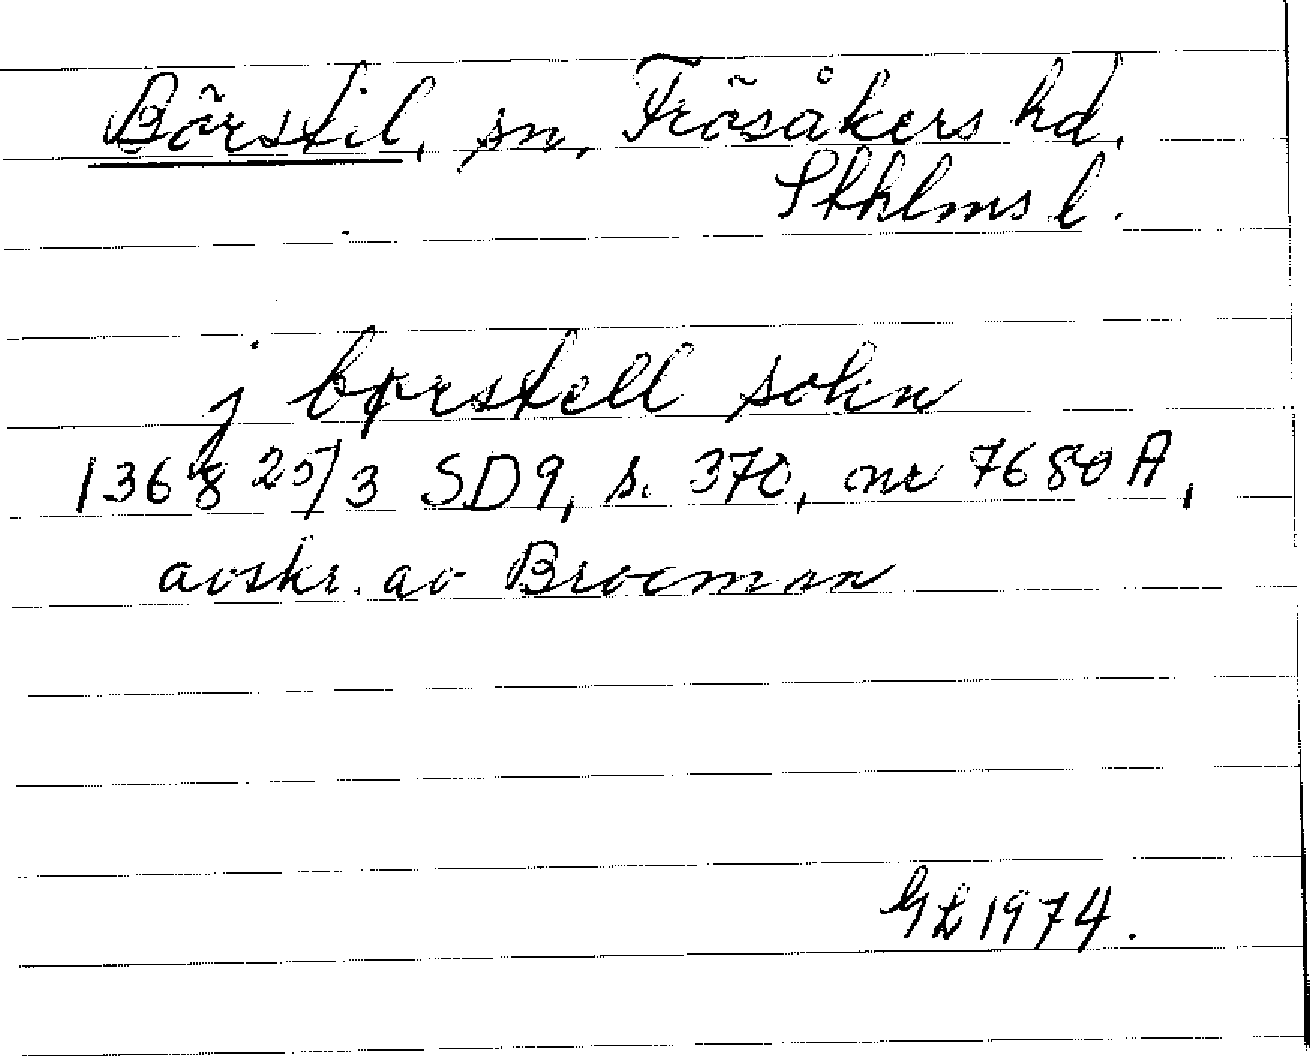 Börstil, sn, Frösåkers hd.
Stkhlms l.
j børstell sokn
1368 25/3 SD9, s. 370, nr 7680 A,
avskr. av Brocman
GL 1974.